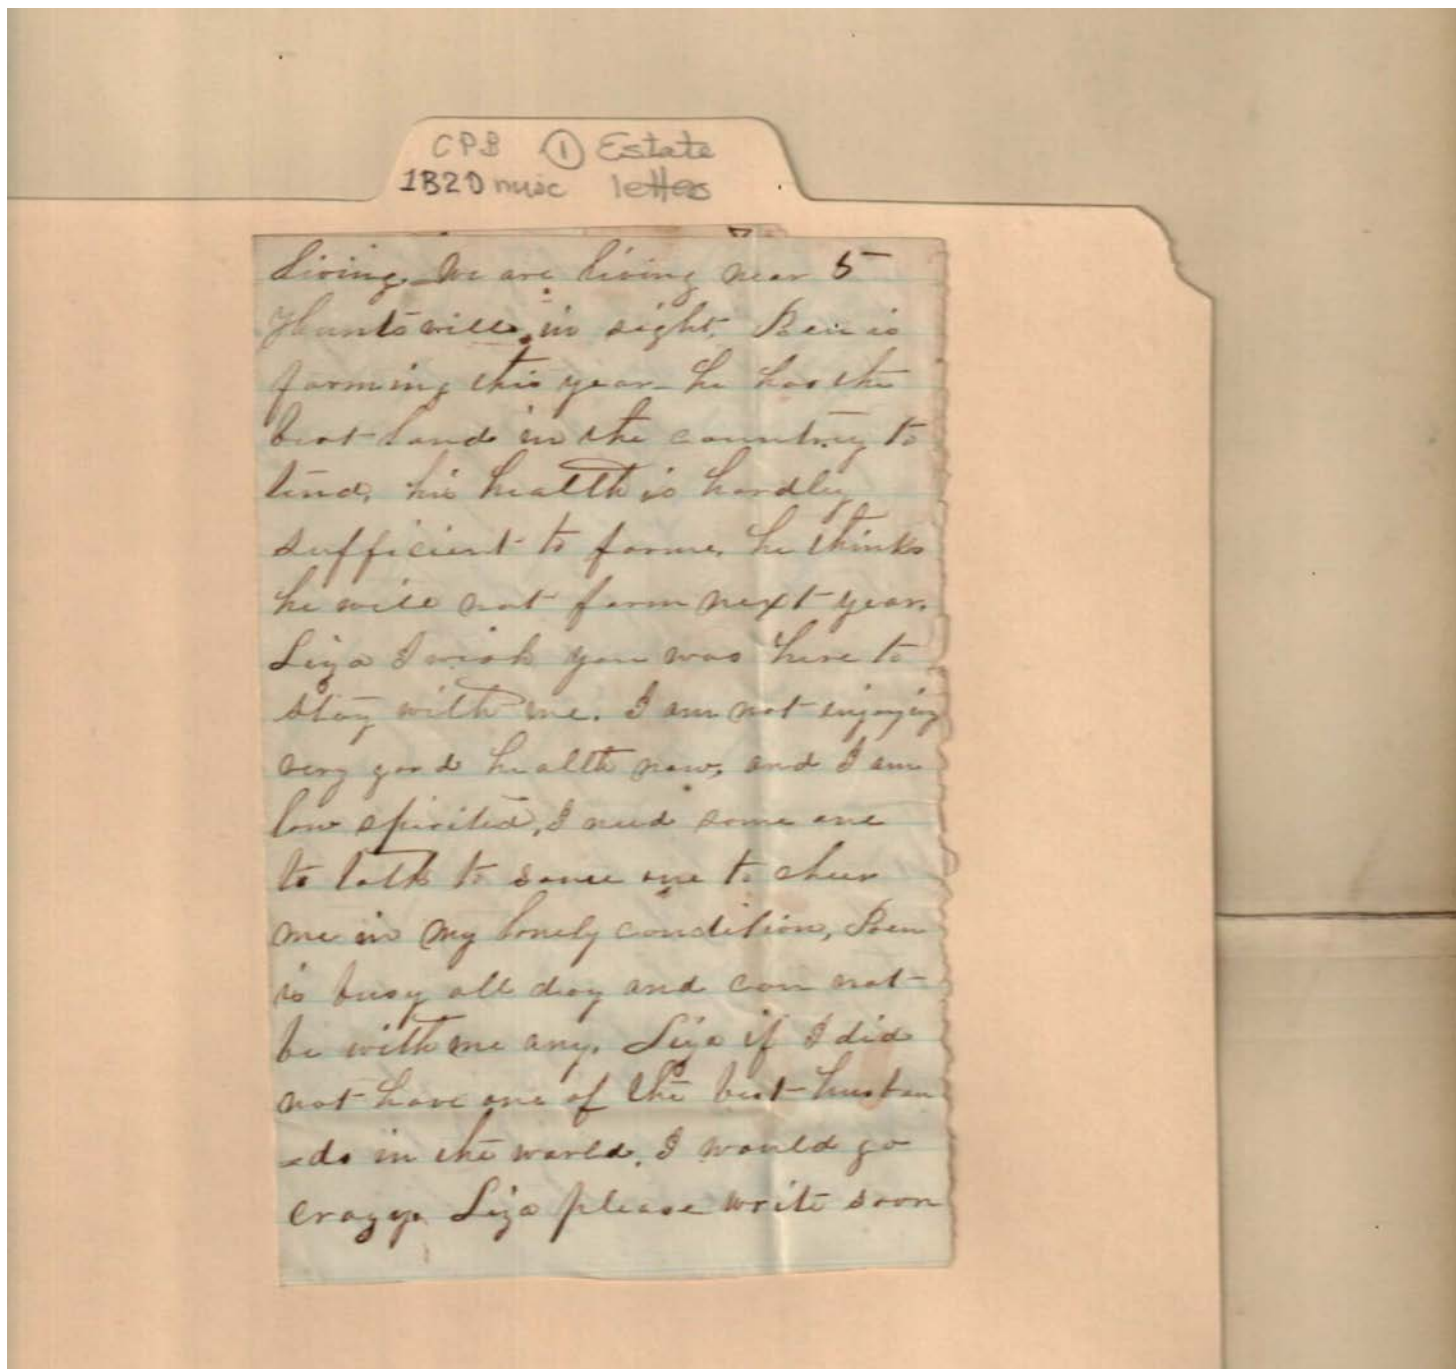 CPB ① Estate
1820 misc letters
living. We are living near 5
Huntsville, in sight. Ben is
farming this year - he has the
best land in the country to
tend, his health is hardly
sufficient to farme. he thinks
he will not farm next year.
Liza I wish you was here to
stay with me. I am not enjoying
very good health now, and I am
low spirited, I need some one
to talk to some one to cheer
me in my lonely condition, Ben
is busy all day and can not
be with me any. Liza if I did
not have one of the best husban
-ds in the world. I would go
crazy. Liza please write soon